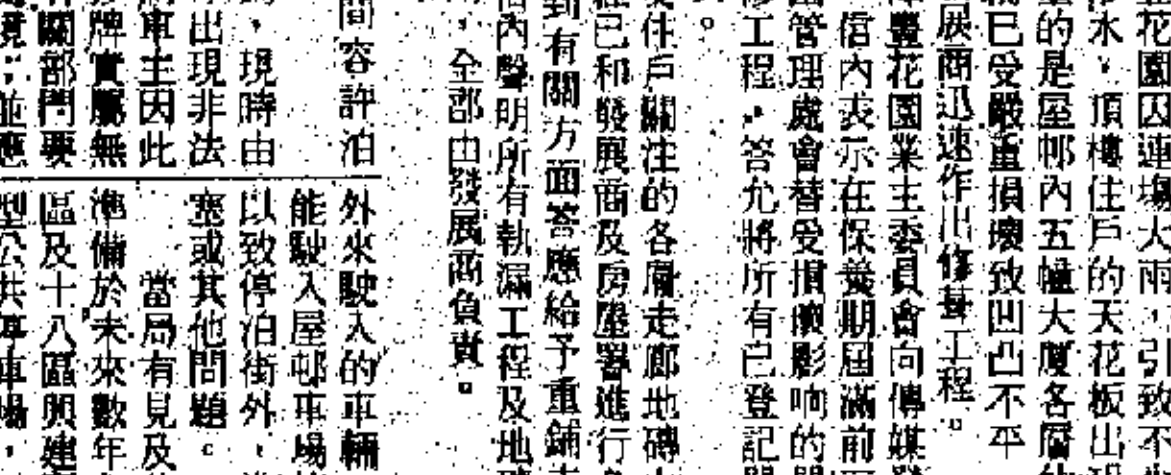 花園因連場大雨，引致不
水，頂樓住戶的天花板出
的是屋邨內五幢大廈各層
已受嚴重損壞致凹凸不平
展商迅速作出修葺工程。
豐花園業主委員會向傳媒
信內表示在保養期屆滿前
管理處會替受損壞影响的
工程，答允將所有已登記
。
住戶關注的各層走廊地磚
已和發展商及房屋署進行
到有關方面答應給予重鋪
內聲明所有執漏工程及地
，全部由發展商負責。
間容許泊
，現時由
出現非法
車主因此
牌實屬無
關部門要
境；並應
外來駛入的車輛
能駛入屋邨車場
以致停泊街外，
塞或其他問題。
當局有見及
準備於未來數年
區及十八區興建
型公共停車場，